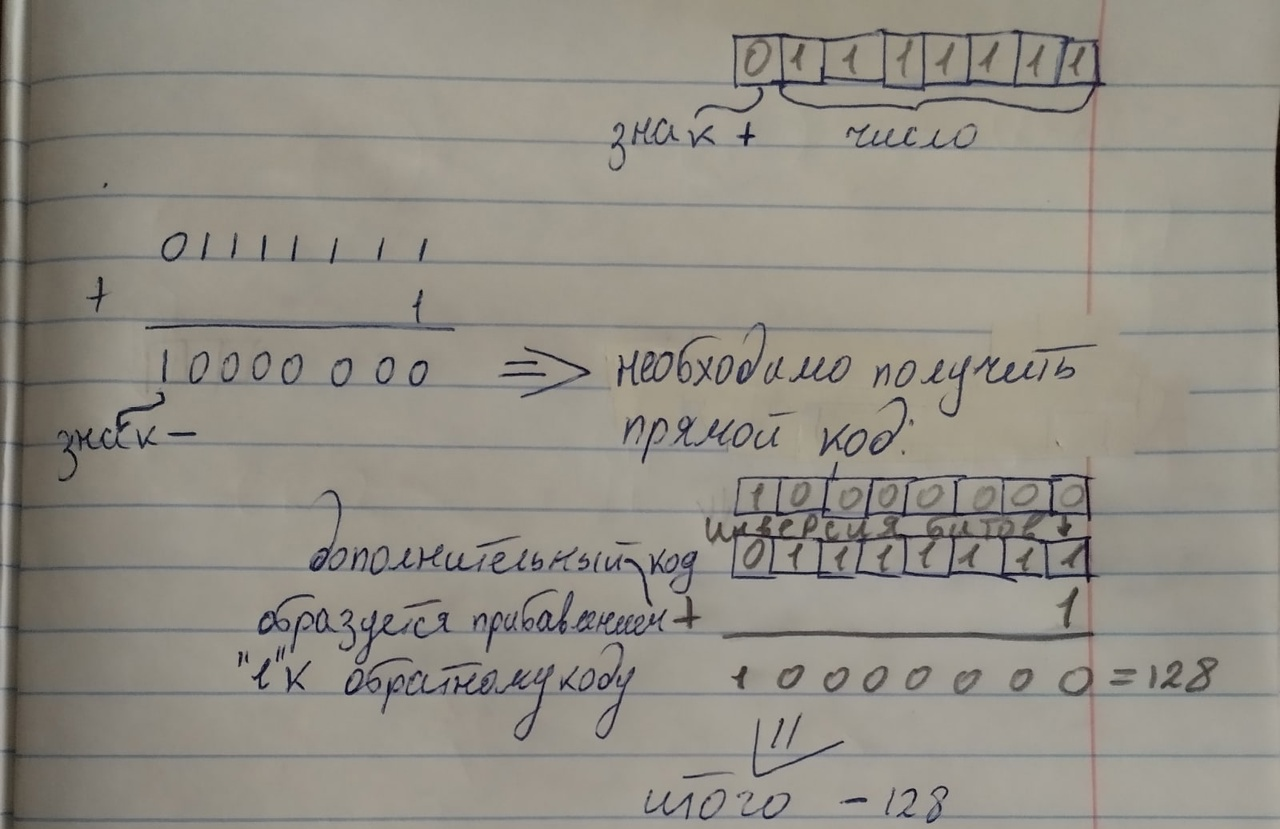 0 1 1 1 1 1 1 1
знак + число
01111111
+ 1
10000000 => необходимо получить
знак – прямой код:
1 0 0 0 0 0 0 0
инверсия битов ↓
дополнительный код 0 1 1 1 1 1 1 1
образуется прибавлением + 1
"1" к обратному коду 1 0 0 0 0 0 0 0 = 128
итого – 128